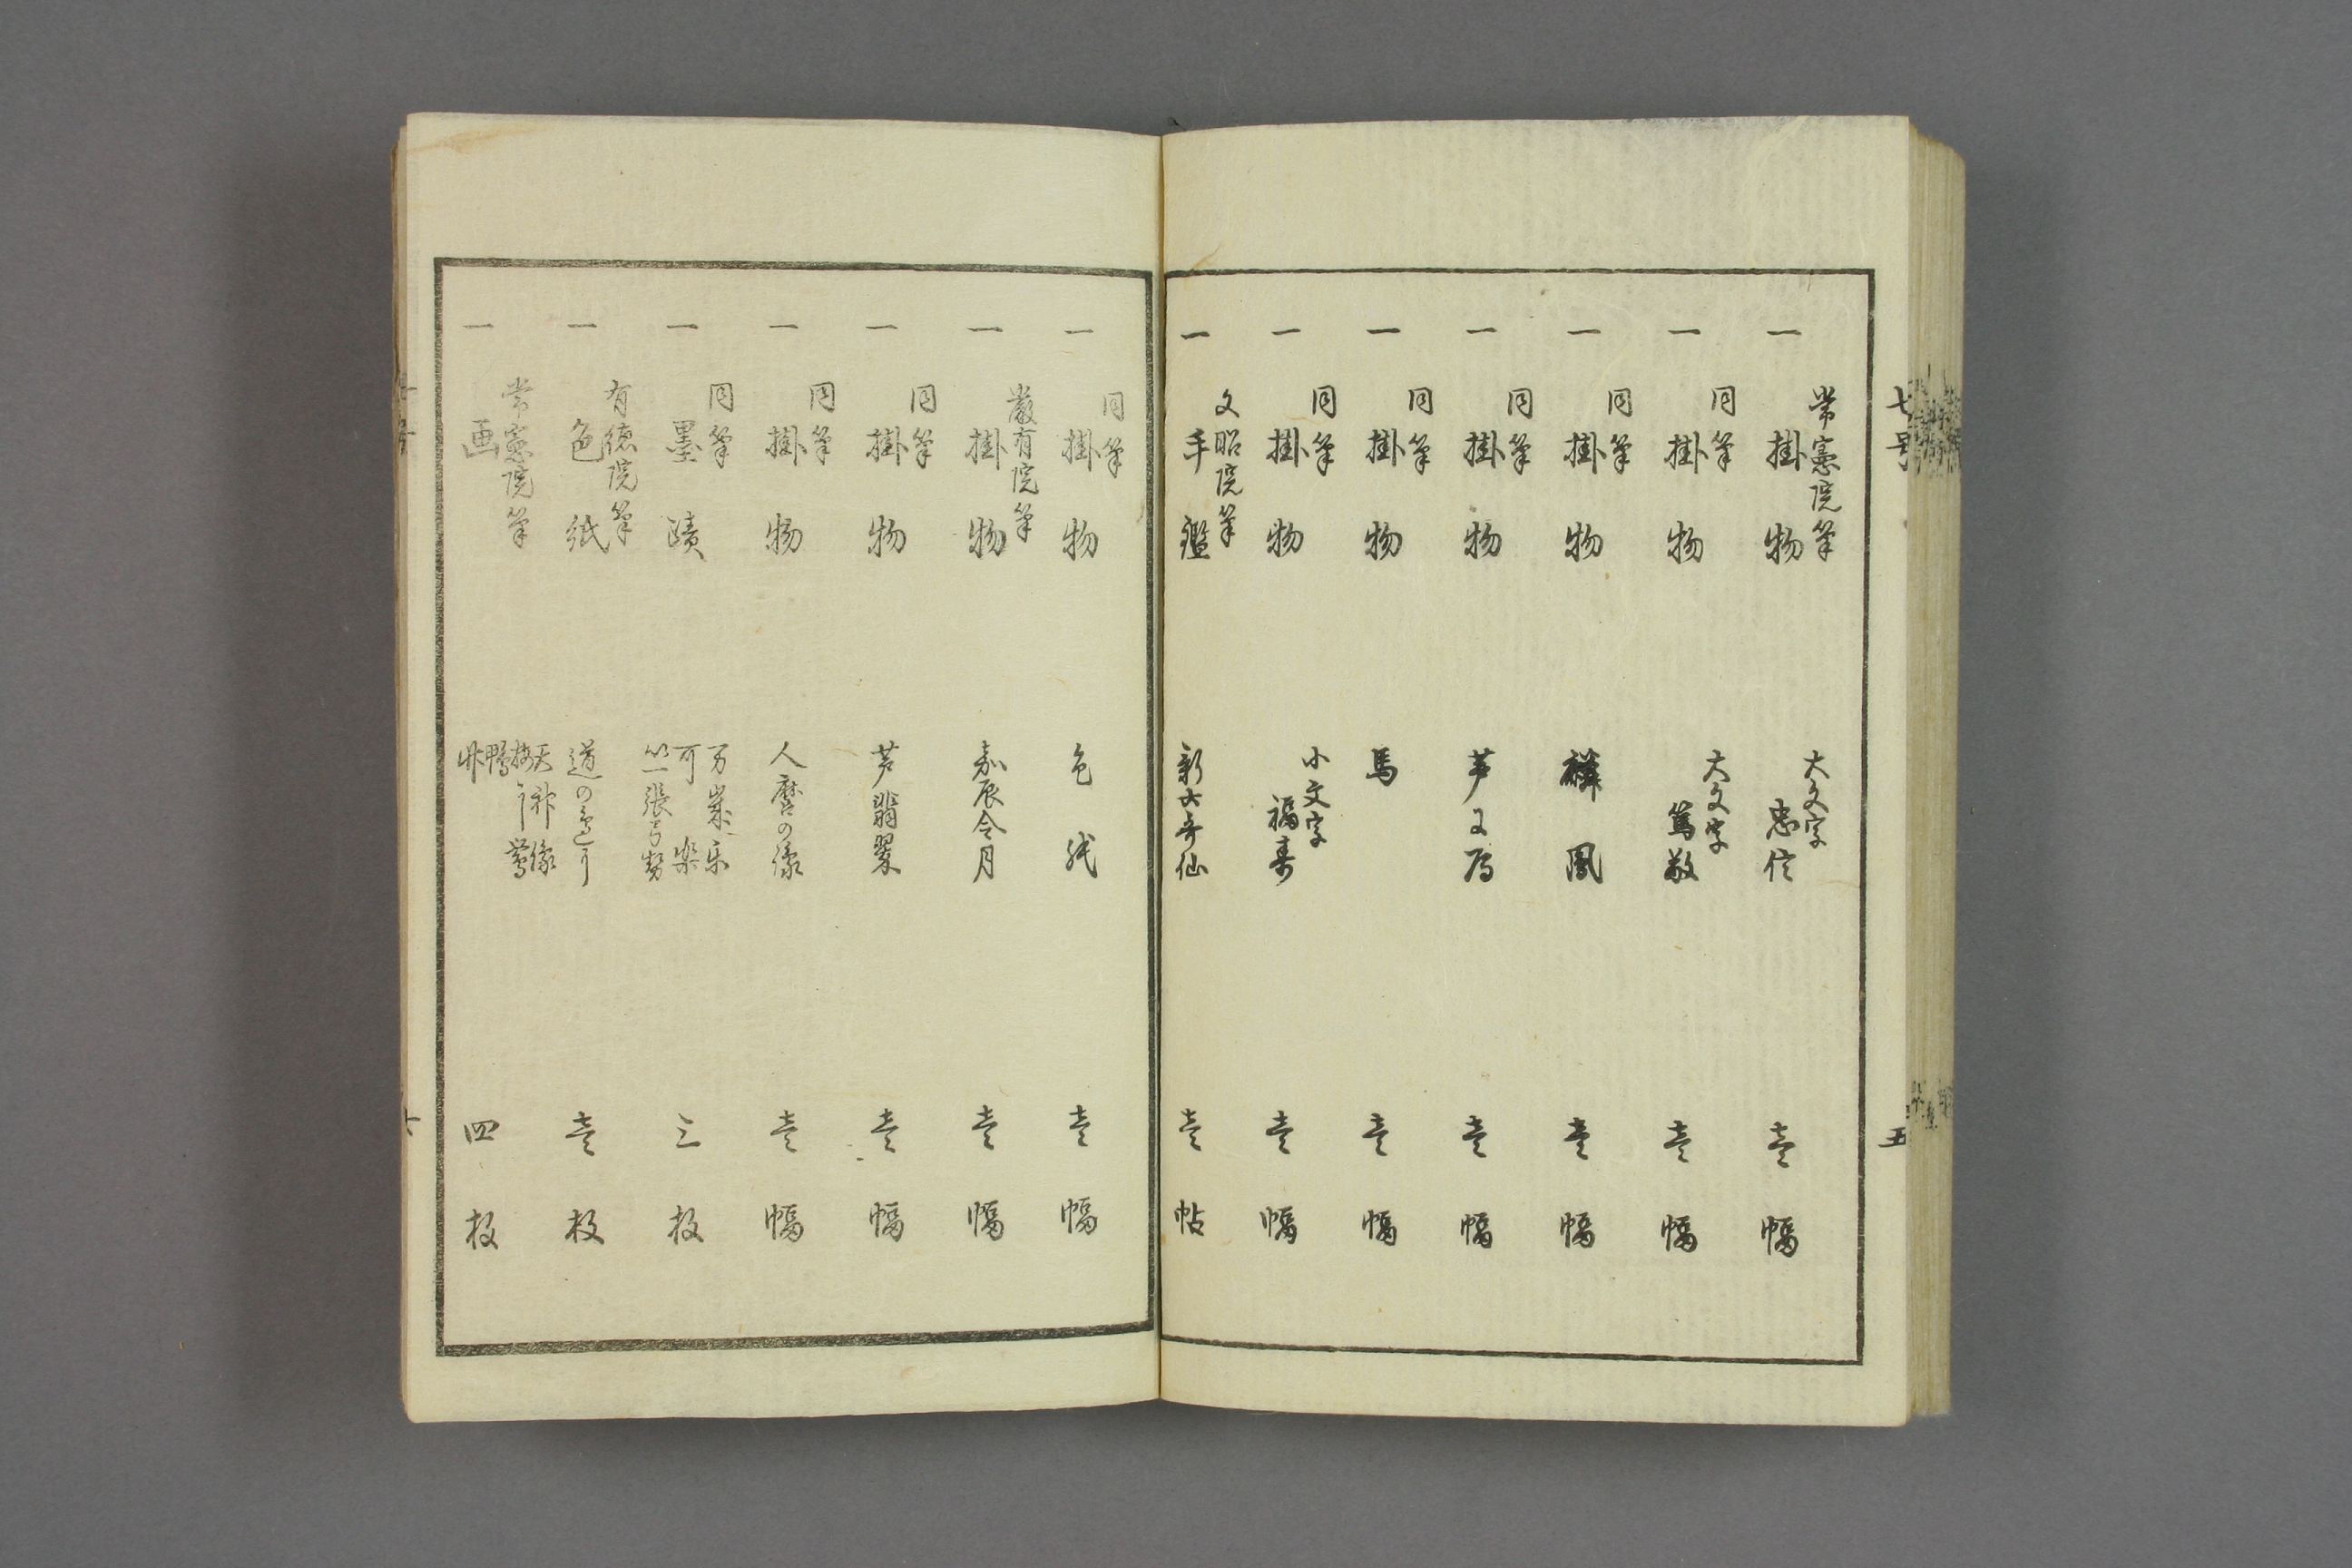 七号
五
常憲院筆
一 掛物 大文字 忠信 壱幅
同筆
一 掛物 大文字 篤敬 壱幅
同筆
一 掛物 鳳 壱幅
同筆
一 掛物 芦ニ 壱幅
同筆
一 掛物 馬 壱幅
同筆
一 掛物 小文字 福寿 壱幅
文昭院筆
一 手鑑 新六哥仙 壱帖
同筆
一 掛物 色紙 壱幅
厳有院筆
一 掛物 嘉辰令月 壱幅
同筆
一 掛物 芦翡翠 壱幅
同筆
一 掛物 人麿の像 壱幅
同筆
一 墨蹟 万歳楽 可楽 一張弓勢 三枚
有徳院筆
一 色紙 道の 壱枚
常憲院筆
一 画 天神像 鴨 四枚